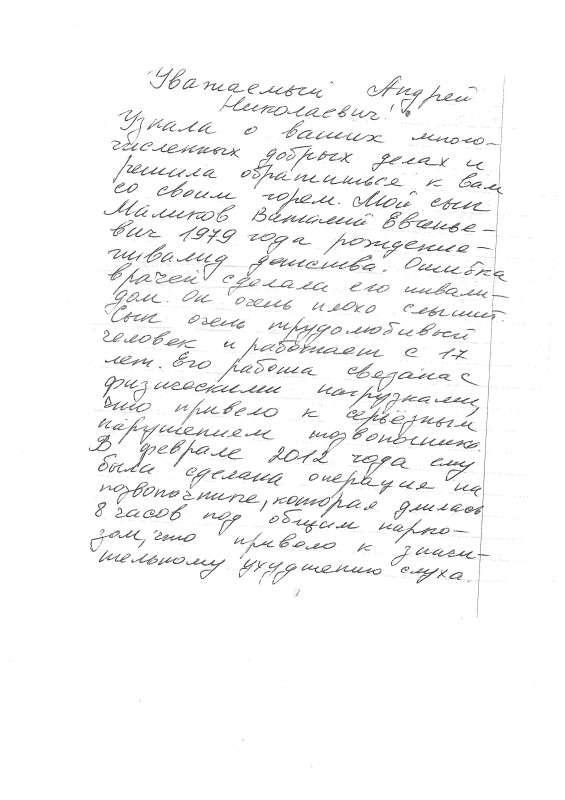 Уважаемый Андрей
Николаевич!
Узнала о ваших много-
численных добрых делах и
решила обратиться к вам
со своим горем. Мой сын
Маликов Виталий Евгенье-
вич 1979 года рождения -
инвалид детства. Ошибка
врачей сделала его инвали-
дом. Он очень плохо слышит.
Сын очень трудолюбивый
человек и работает с 17
лет. Его работа связана с
физическими нагрузками,
что привело к серьёзным
нарушением позвоночника.
В феврале 2012 года ему
была сделана операция на
позвоночнике, которая длилась
8 часов под общим нарко-
зом, что привело к значи-
тельному ухудшению слуха.